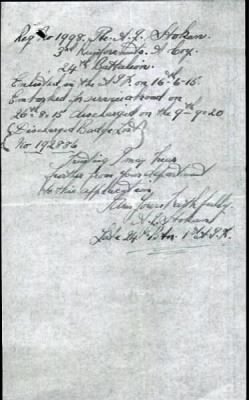 Reg No 1998. Pte. A. L. Stoken.
3rd Reinforcements A Coy.
24th Battalion.
Enlisted in the A.I.F. on 16th-6-15.
Embarked for service abroad on
26th-8-15 discharged on the 9-7-20
Discharged Badge Lost
No 192836
Trusting I may hear
further from your department
to this application,
I am Yours Faithfully.
A. L. Stoken
Late 24th Btn. 1st A.I.F.